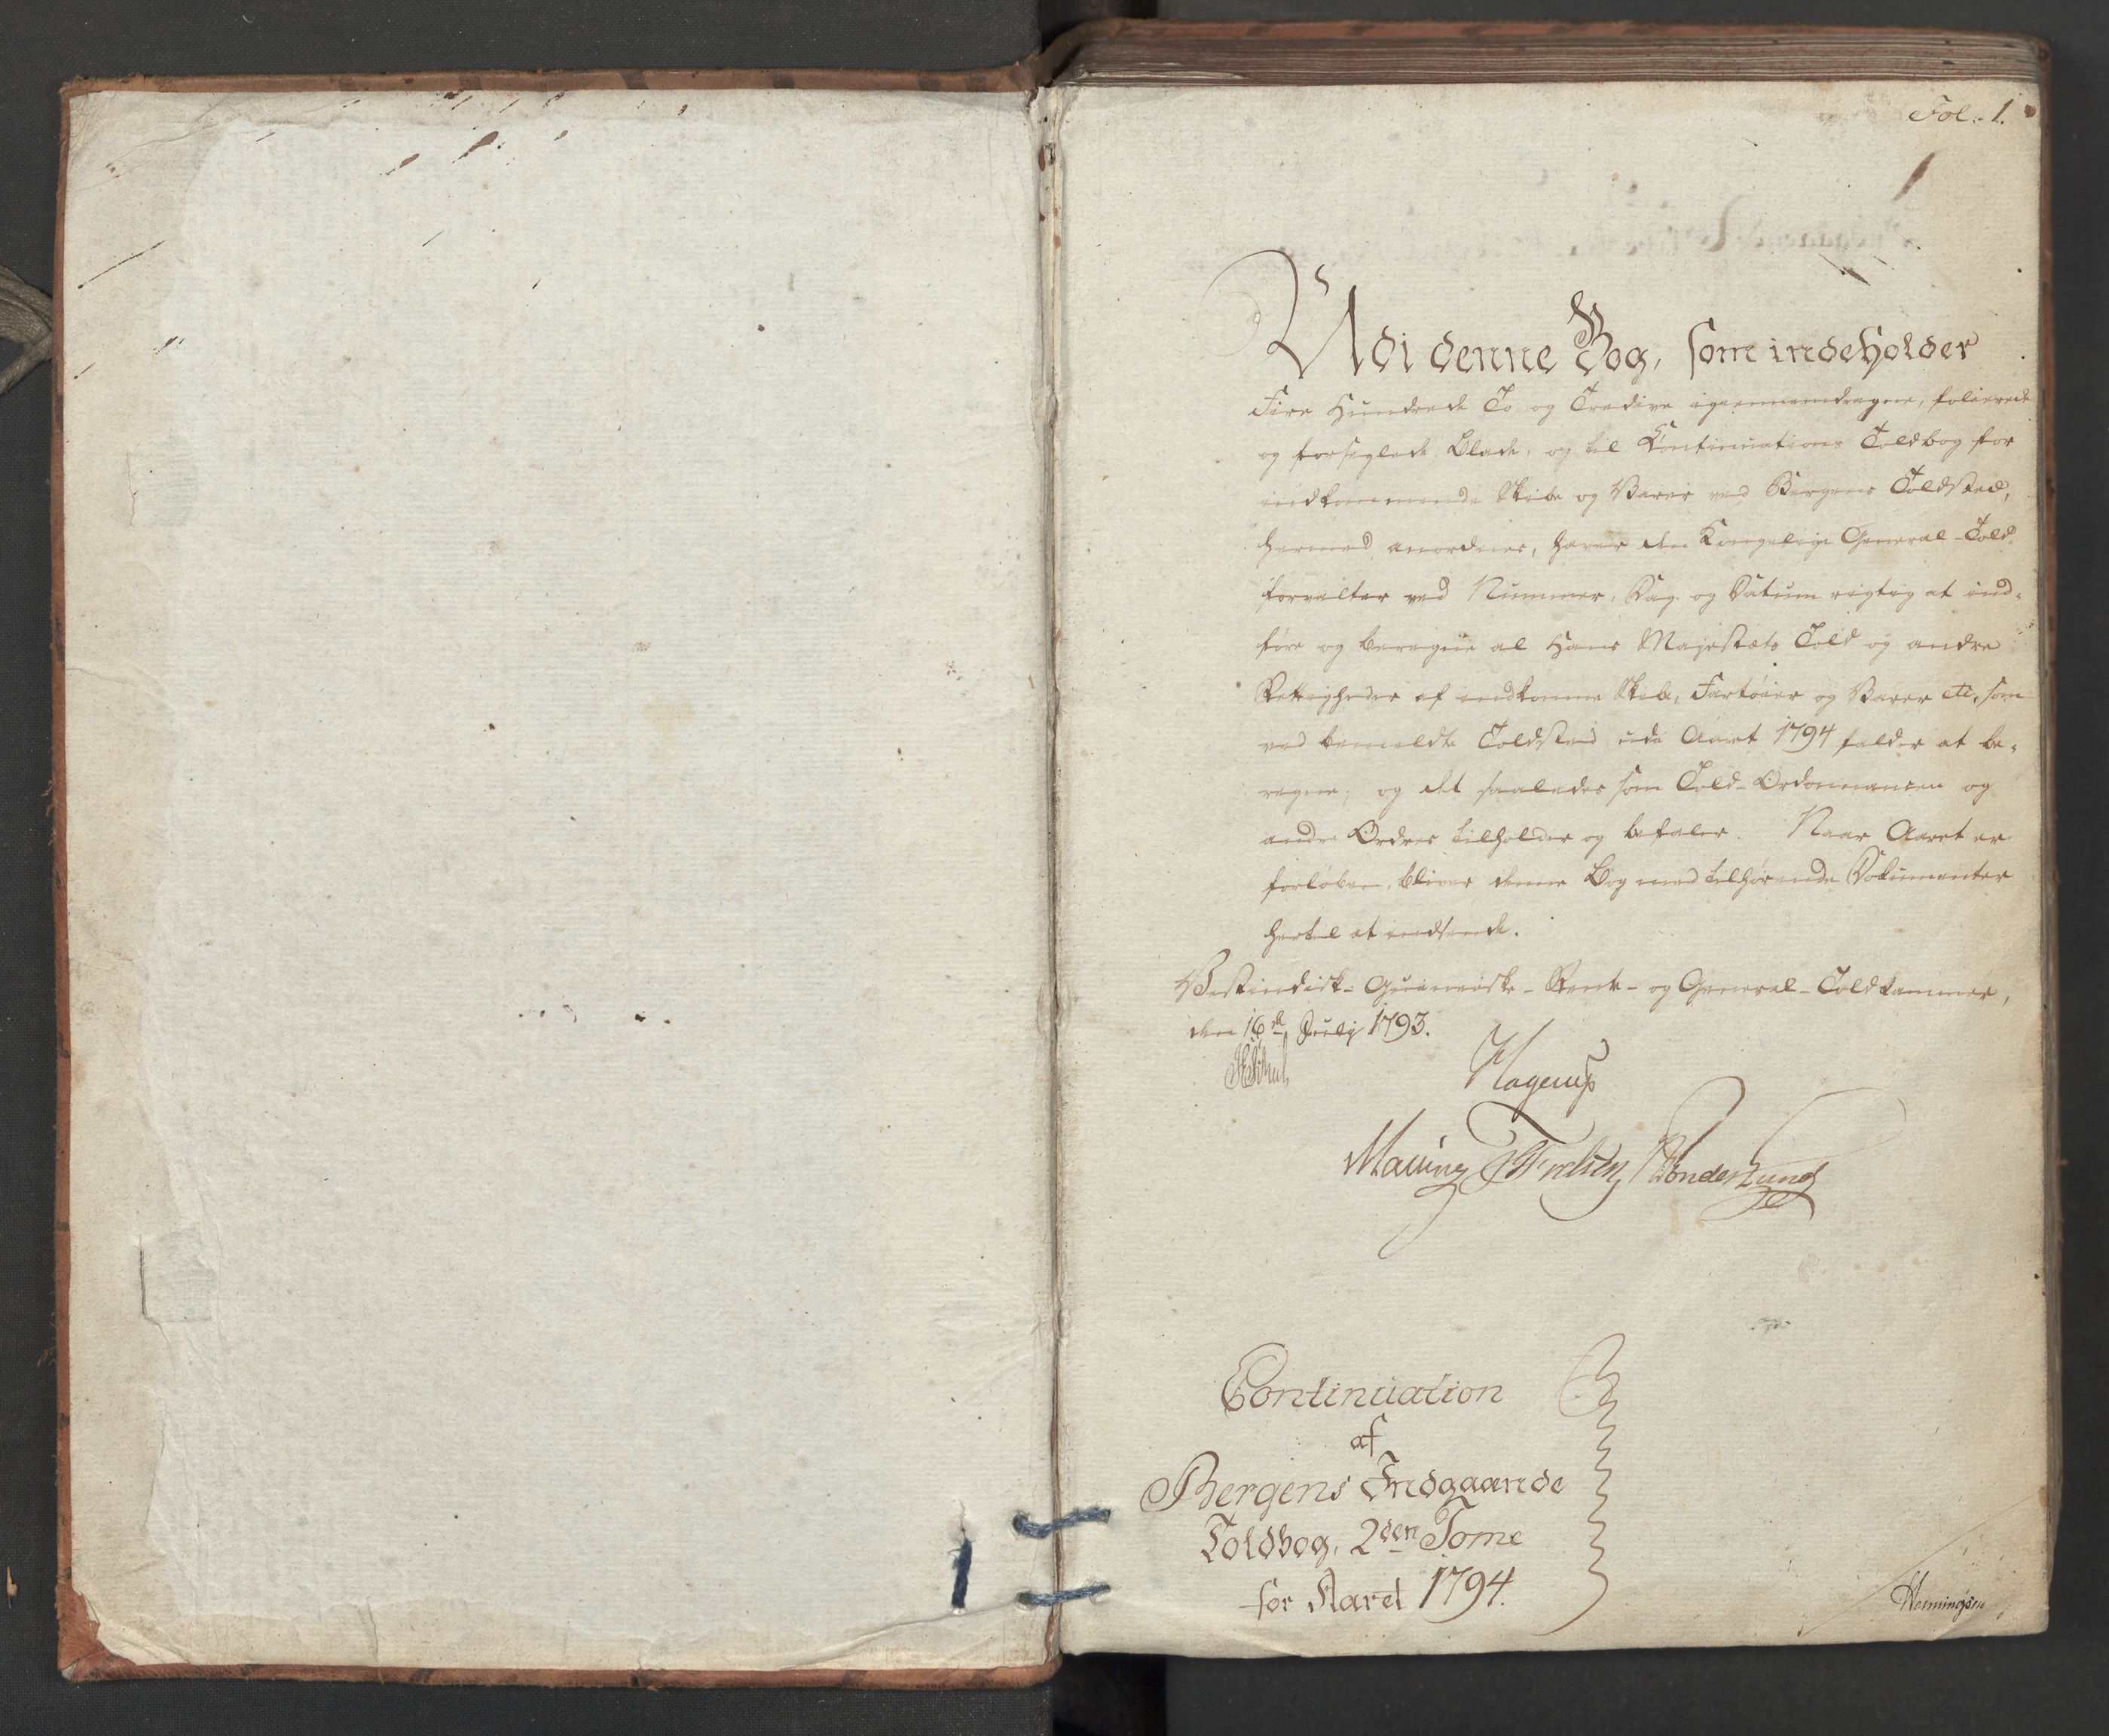 Fol: 1.
Udi denne Bog, som indeholder
Fire Hundrede To og Tredive igiennemdragne, folierede
og forseglede Blade, og til Continuations Toldbog for
indkommende Skibe og Varer ved Bergens Toldsted,
hermed anordnes, haver den Kongelige General-Told-
forvalter ved Nummer, Dag og Datum rigtig at ind-
føre og beregne al Hans Majestæts Told og andre
Rettigheder af indkomne Skibe, Fartøier og Varer etc, som
ved bemeldte Toldsted udi Aaret 1794 falder at be-
regne; og det saaledes som Told-Ordonnancen og
andre Ordres tilholder og befaler. Naar Aaret er
forløben, bliver denne Bog med tilhørende Dokumenter
hertil at indsende.
Vestindisk-Guineiske-Rente- og General-Toldkammer,
den 16de Julij 1793.
Hagerup
Continuation
af
Bergens Indgaaende
Toldbog, 2den Tome
for Aaret 1794.
Henningsen